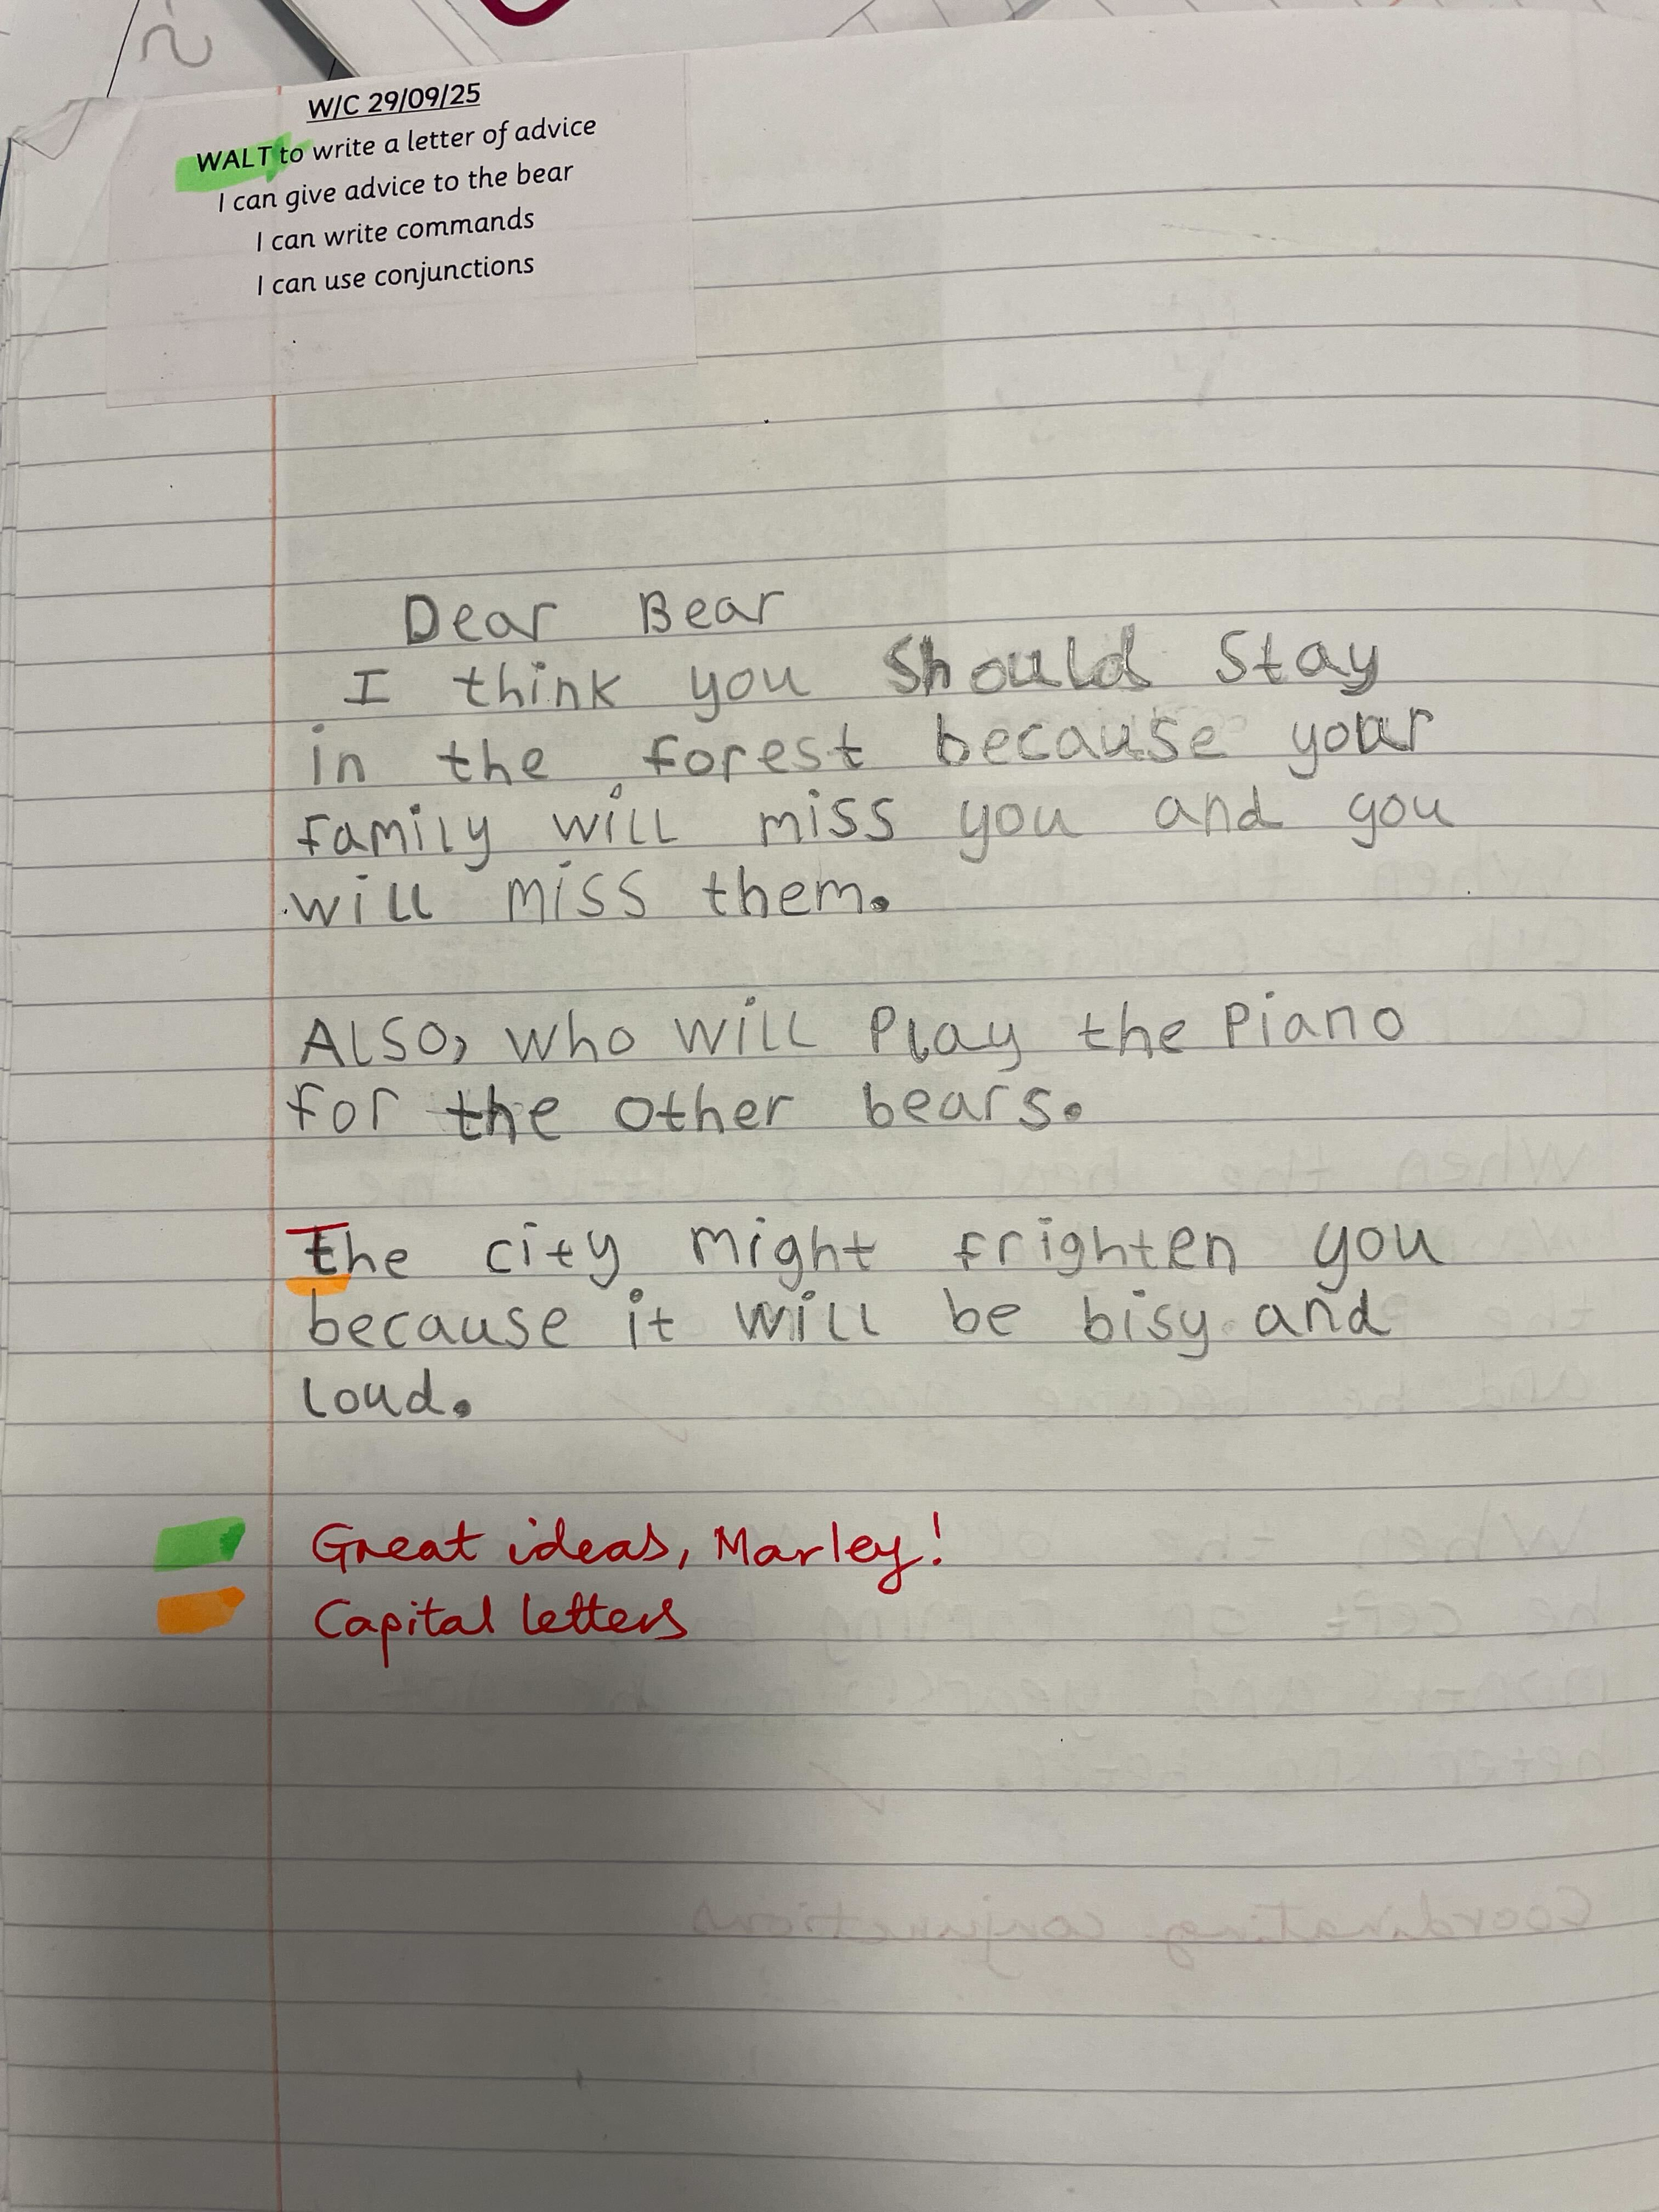 W/C 29/09/25
WALT to write a letter of advice
I can give advice to the bear
I can write commands
I can use conjunctions
Dear Bear
I think you Should Stay
in the forest because your
family will miss you and you
will miss them.
Also, who will Play the Piano
for the other bears.
The city might frighten you
because it will be bisy and
loud.
Great ideas, Marley!
Capital letters
Coordinating conjunctions